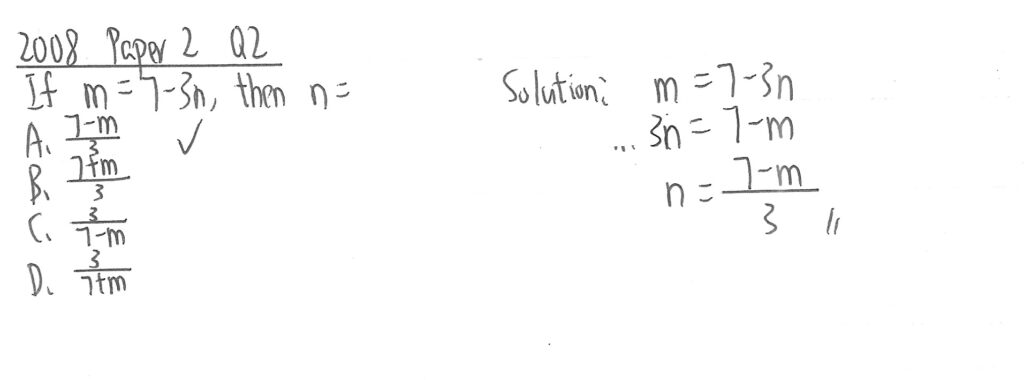 2008 Paper 2 Q2
If m = 7-3n, then n =
A. (7-m)/3 ✓
B. (7+m)/3
C. 3/(7-m)
D. 3/(7+m)
Solution: m = 7-3n
... 3n = 7-m
n = (7-m)/3 //